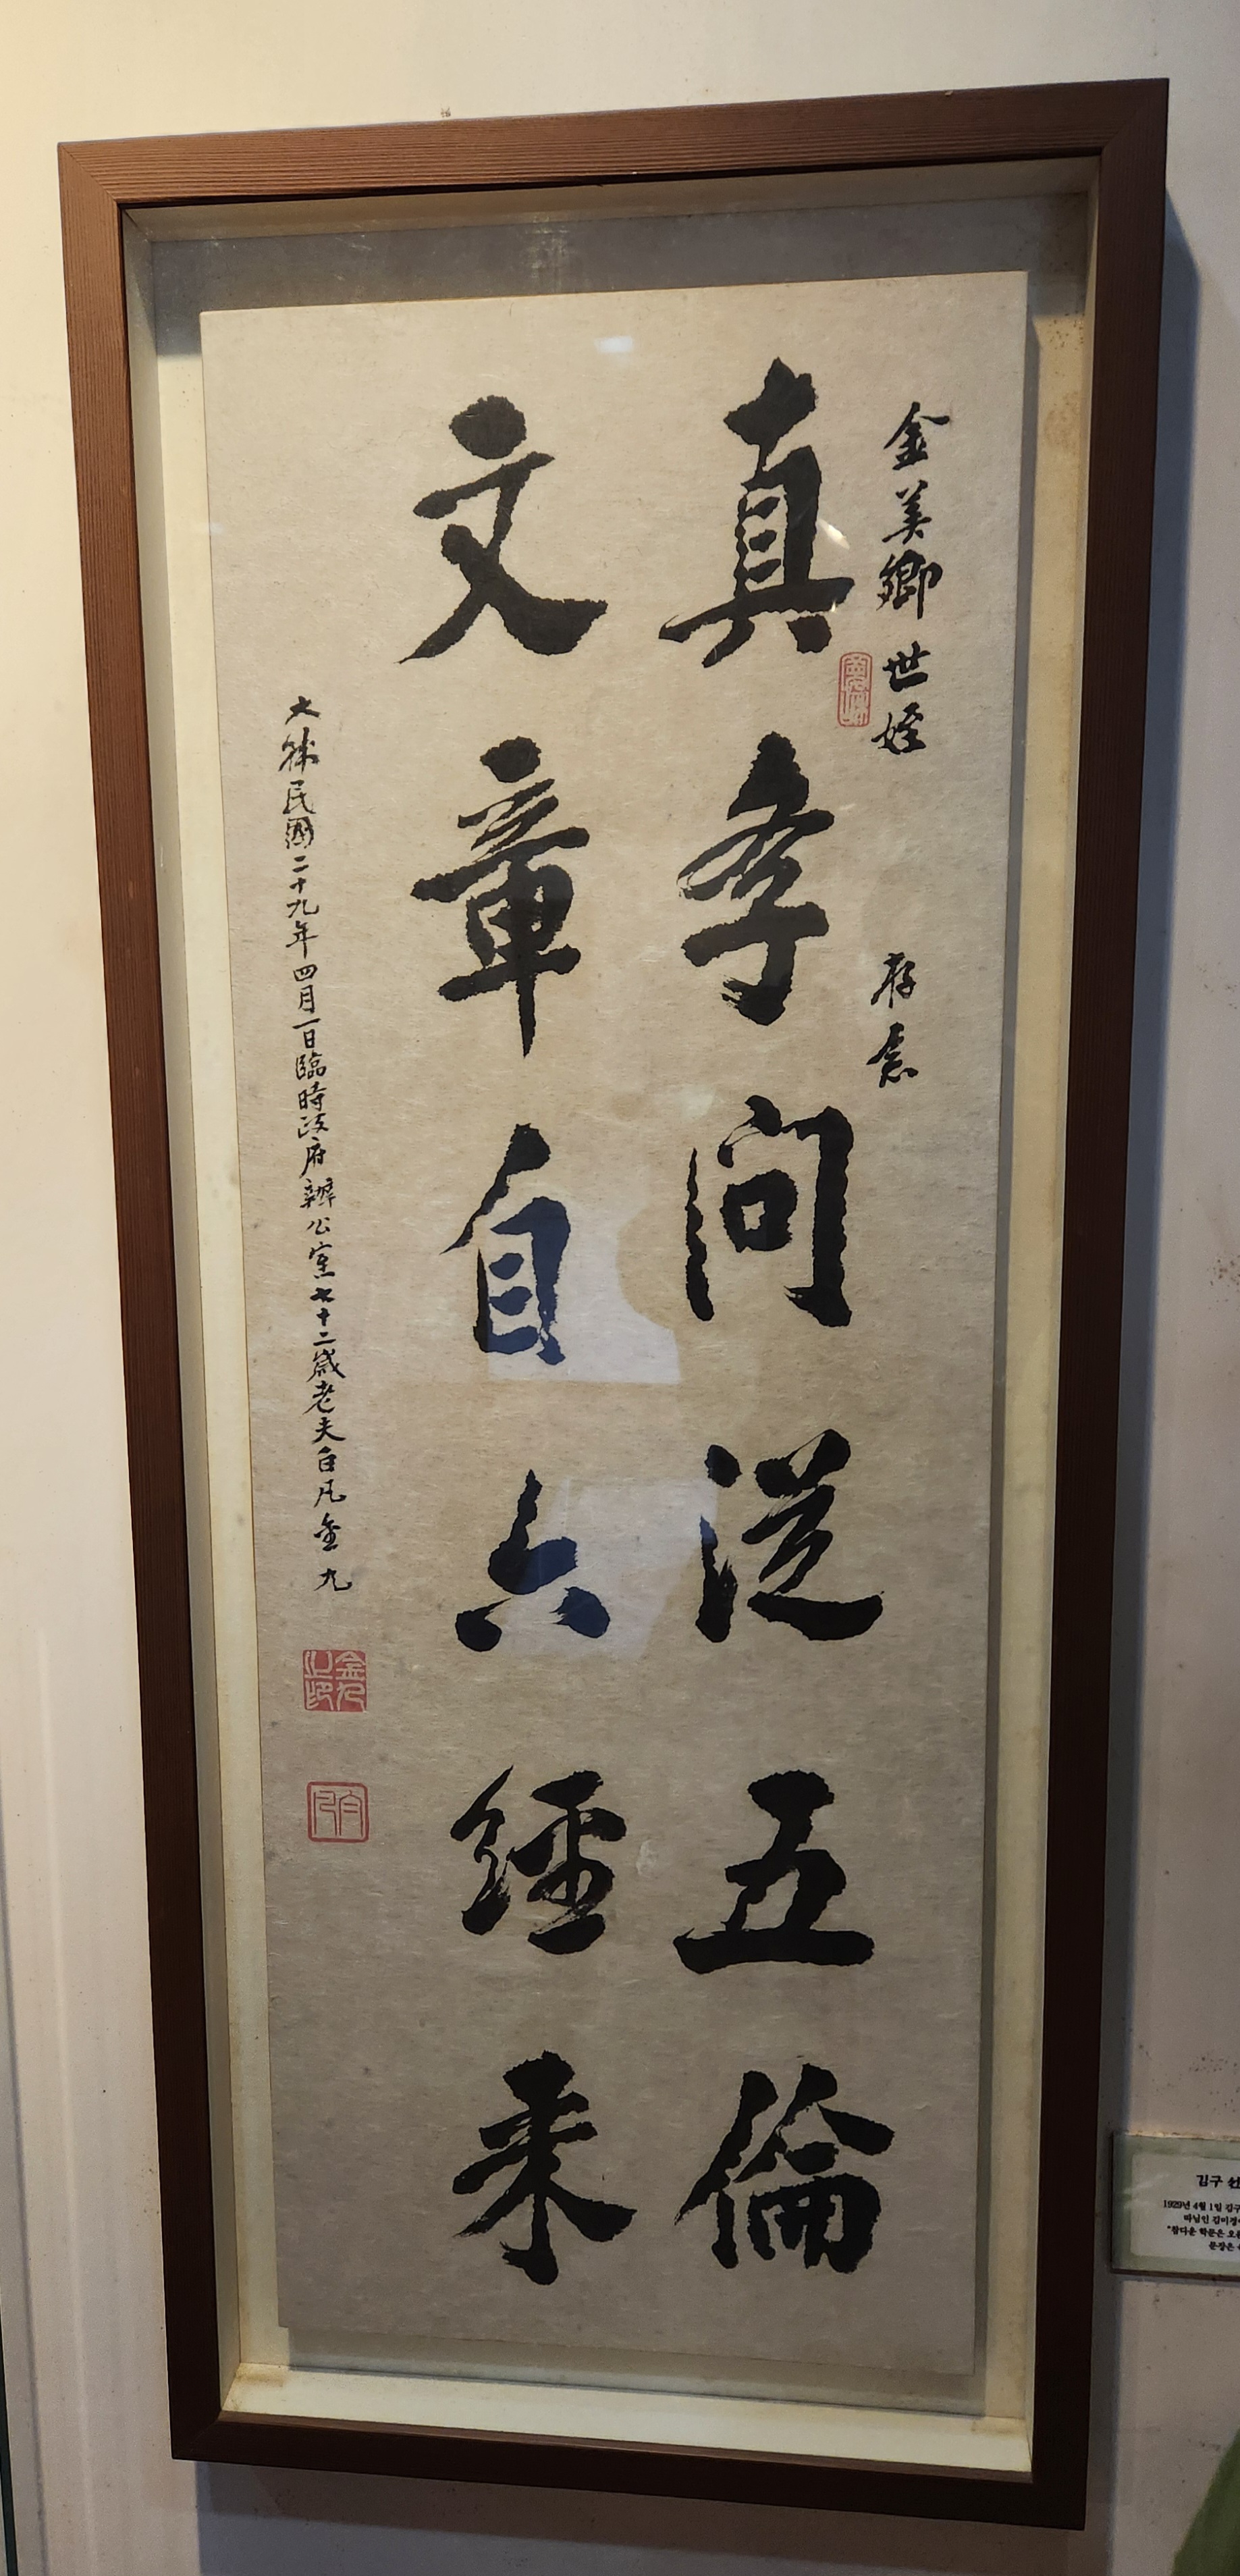 金美卿世姪 存念
真孝问從五倫
文章自六經來
大韓民國二十九年四月一日臨時政府辦公室七十二歲老夫白凡金九
金九之印
白凡
김구
1929년 4월 1일 김구
따님인 김미경
"참다운 학문은 오륜
문장은